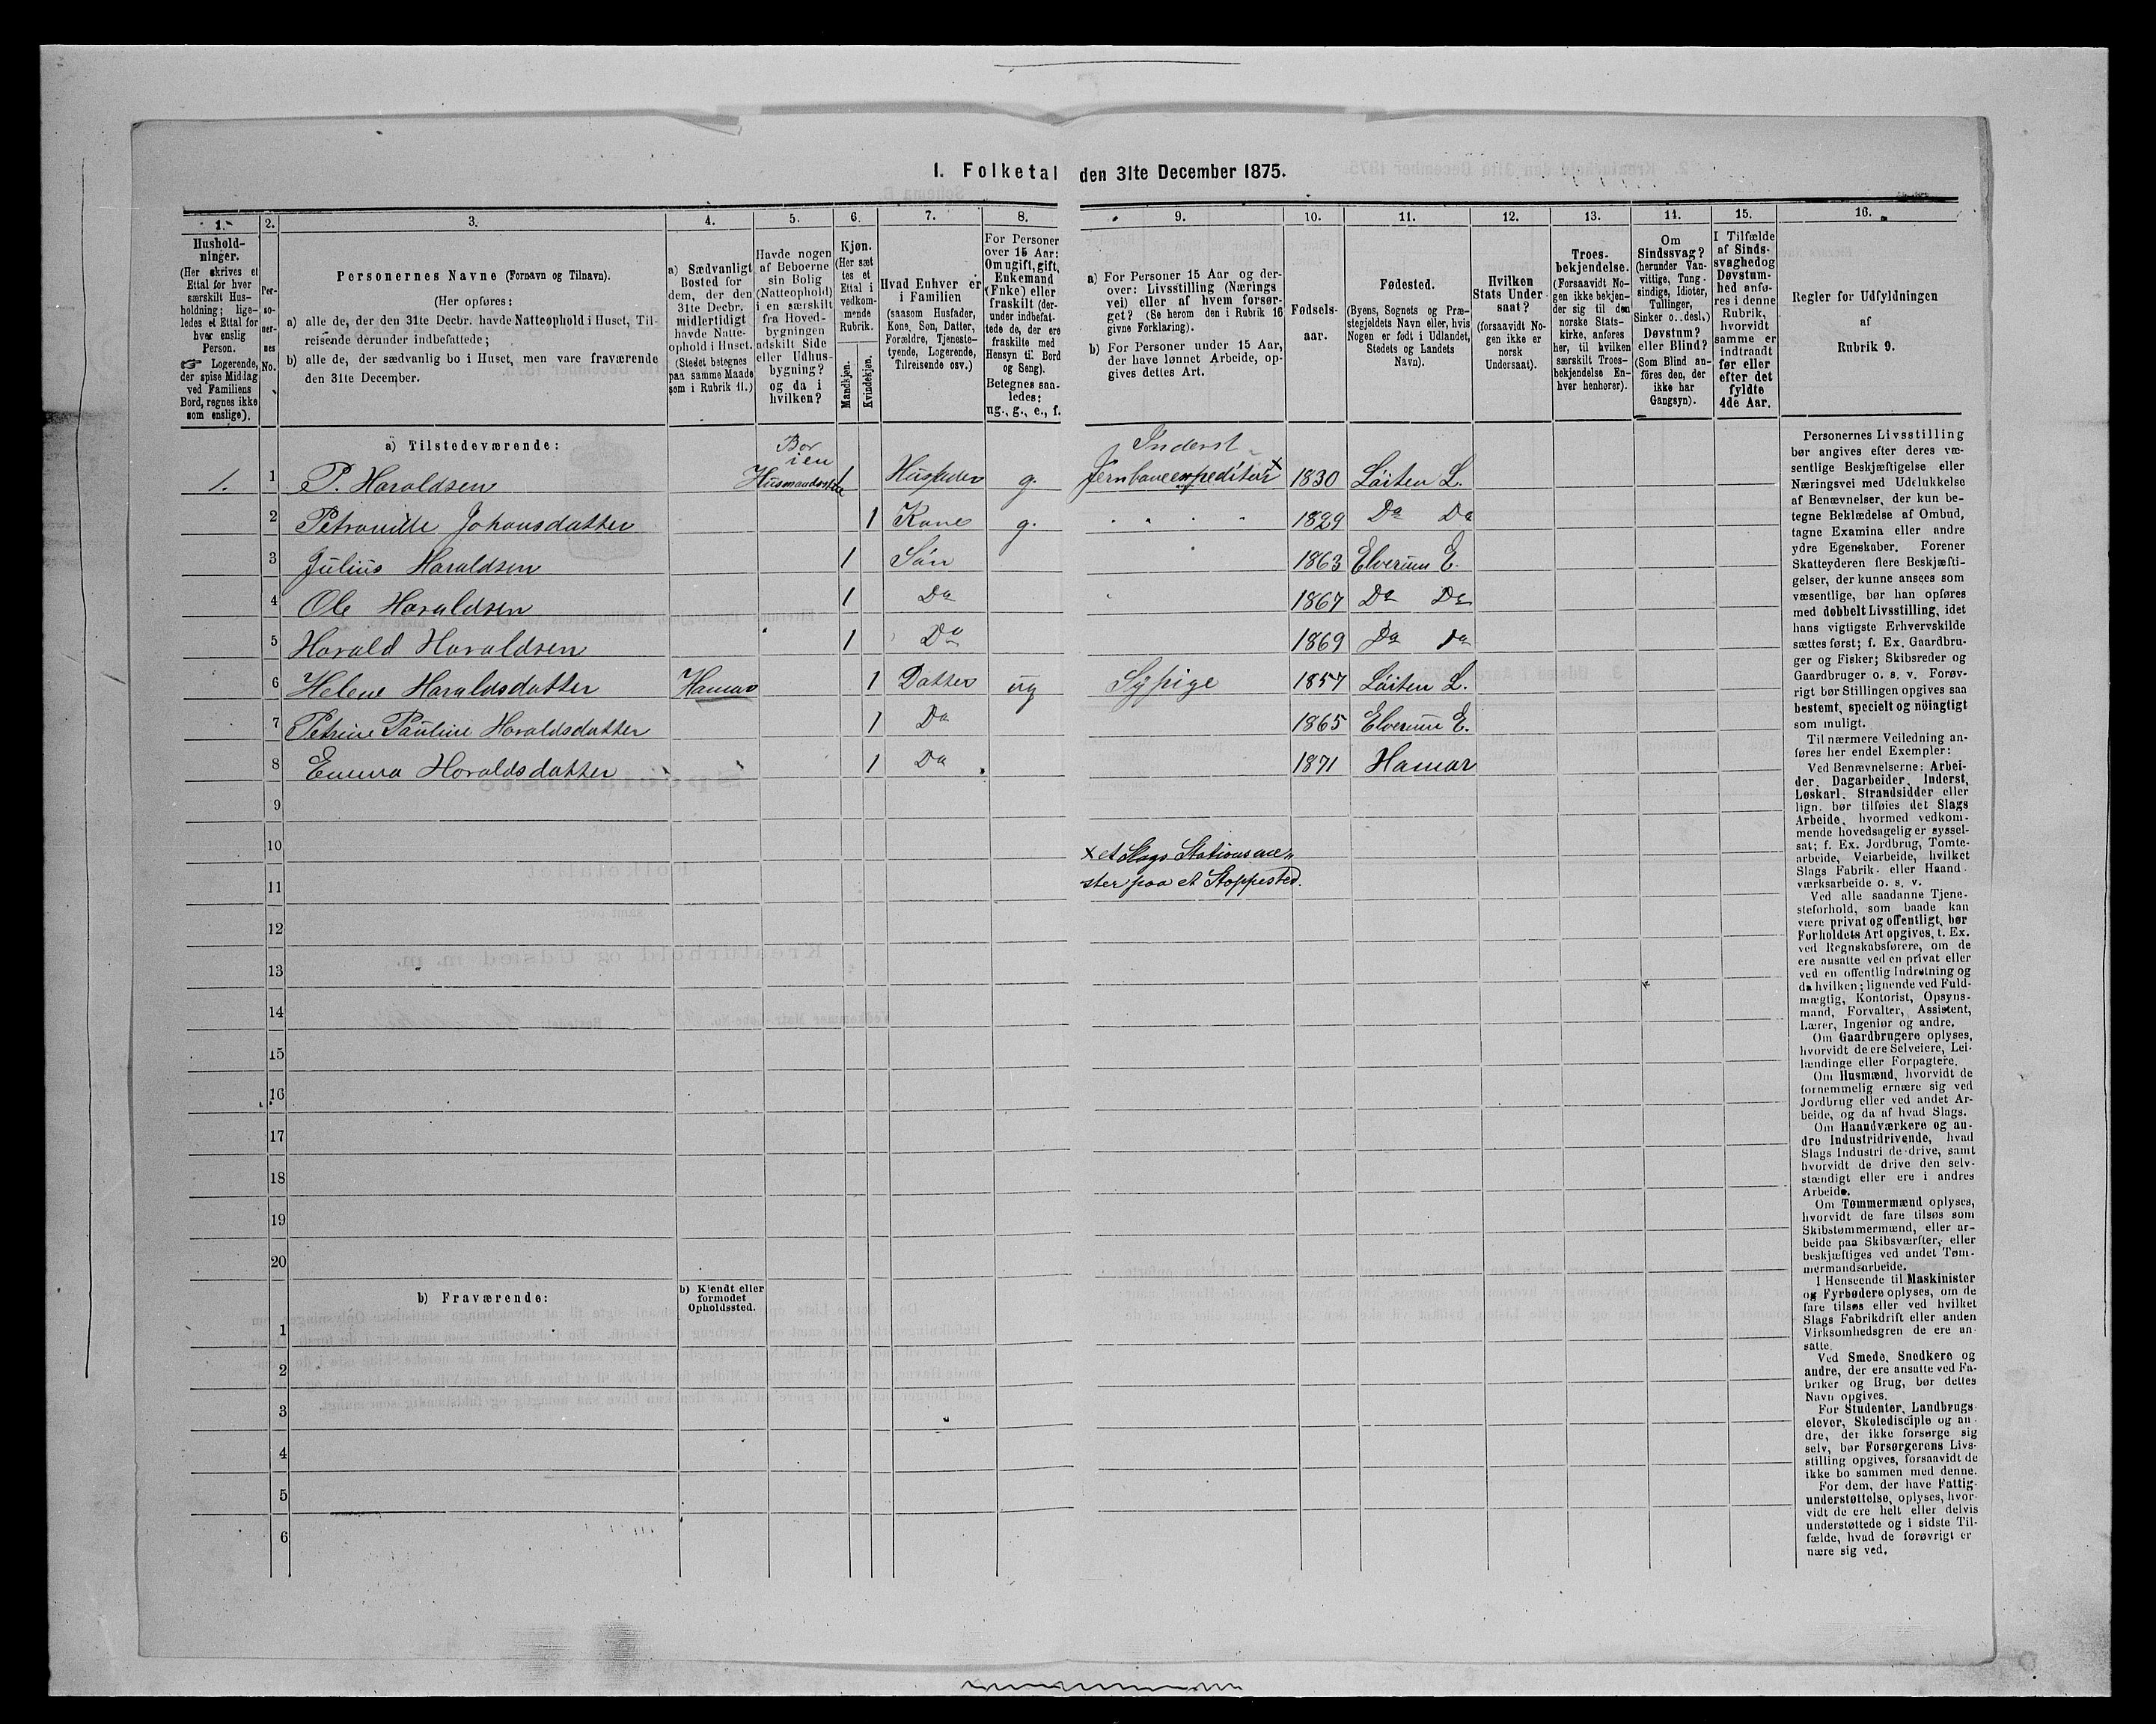 I. Folketal den 31te December 1875.
1.
2.
3.
4.
5.
6.
7.
8.
9.
10.
11.
12.
13.
14.
15.
16.
Hushold-
ninger.
(Her skrives et
Ettal for hver
særskilt Hus-
holdning; lige-
ledes et Ettal for
hver enslig
Person.
☞ Logerende,
der spise Middag
ved Familiens
Bord, regnes ikke
som enslige).
Per-
so-
ner-
nes
No.
Personernes Navne (Fornavn og Tilnavn).
(Her opføres:
a) alle de, der den 31te Decbr. havde Natteophold i Huset, Til-
reisende derunder indbefattede;
b) alle de, der sædvanlig bo i Huset, men vare fraværende
den 31te December.
a) Sædvanligt
Bosted for
dem, der den
31te Decbr.
midlertidigt
havde Natte-
ophold i Huset.
(Stedet betegnes
paa samme Maade
som i Rubrik 11.)
Havde nogen
af Beboerne
sin Bolig
(Natteophold)
i en særskilt
fra Hoved-
bygningen
adskilt Side
eller Udhus-
bygning?
og da i
hvilken?
Kjøn.
(Her sæt
tes et
Ettal i
vedkom-
mende
Rubrik.
Mandkjøn.
Kvindekjøn.
Hvad Enhver er
i Familien
(saasom Husfader,
Kone, Søn, Datter,
Forældre, Tjeneste-
tyende, Logerende,
Tilreisende osv.)
For Personer
over 15 Aar:
Om ugift, gift,
Enkemand
(Enke) eller
fraskilt (der-
under indbefat-
tede de, der ere
fraskilte med
Hensyn til Bord
og Seng).
Betegnes saa-
ledes:
ug., g., e., f.
a) For Personer 15 Aar og der-
over: Livsstilling (Nærings
vei) eller af hvem forsør-
get? (Se herom den i Rubrik 16
givne Forklaring).
b) For Personer under 15 Aar,
der have lønnet Arbeide, op-
gives dettes Art.
Fødsels-
aar.
Fødested.
(Byens, Sognets og Præ-
stegjeldets Navn eller, hvis
Nogen er født i Udlandet,
Stedets og Landets
Navn).
Hvilken
Stats Under-
saat?
(forsaavidt No-
gen ikke er
norsk
Undersaat).
Troes-
bekjendelse.
(Forsaavidt No-
gen ikke bekjen-
der sig til den
norske Stats-
kirke, anføres
her, til hvilken
særskilt Troes-
bekjendelse En-
hver henhører).
Om
Sindssvag?
(herunder Van-
vittige, Tung-
sindige, Idioter,
Tullinger,
Sinker o. desl.)
Døvstum?
eller Blind?
(Som Blind an-
føres den, der
ikke har
Gangsyn).
I Tilfælde
af Sinds-
svaghed og
Døvstum-
hed anfø-
res i denne
Rubrik,
hvorvidt
samme er
indtraadt
før eller
efter det
fyldte
4de Aar.
Regler for Udfyldningen
af
Rubrik 9.
a) Tilstedeværende:
Bor
i en
Inderst
1. 1 P. Haraldsen Husmandsstue 1 Husfader g. Jernbaneexpeditør x 1830 Löiten L.
2 Petronille Johansdatter 1 Kone g. 1829 Do Do
3 Julius Haraldsen 1 Sön 1863 Elverum E.
4 Ole Haraldsen 1 Do 1867 Do Do
5 Harald Haraldsen 1 Do 1869 Do Do
6 Helene Haraldsdatter Hamar 1 Datter ug Sypige 1857 Löiten L.
7 Petrine Pauline Haraldsdatter 1 Do 1865 Elverum E.
8 Emma Haraldsdatter 1 Do 1871 Hamar
9
10
x et Slags Stationsme„
11
ster paa et Stoppested.
12
13
14
15
16
17
18
19
20
b) Fraværende:
b) Kjendt eller
formodet
Opholdssted.
1
2
3
4
5
6
Personernes Livsstilling
bør angives efter deres væ-
sentlige Beskjæftigelse eller
Næringsvei med Udelukkelse
af Benævnelser, der kun be-
tegne Beklædelse af Ombud,
tagne Examina eller andre
ydre Egenskaber. Forener
Skatteyderen flere Beskjæfti-
gelser, der kunne ansees som
væsentlige, bør han opføres
med dobbelt Livsstilling, idet
hans vigtigste Erhvervskilde
sættes først; f. Ex. Gaardbru-
ger og Fisker; Skibsreder og
Gaardbruger o. s. v. Forøv-
rigt bør Stillingen opgives saa
bestemt, specielt og nöiagtigt
som muligt.
Til nærmere Veiledning an-
føres her endel Exempler:
Ved Benævnelserne: Arbei-
der, Dagarbeider, Inderst,
Løskarl, Strandsidder eller
lign. bør tilføies det Slags
Arbeide, hvormed vedkom-
mende hovedsagelig er syssel-
sat; f. Ex. Jordbrug, Tomte-
arbeide, Veiarbeide, hvilket
Slags Fabrik- eller Haand-
værksarbeide o. s. v.
Ved alle saadanne Tjene-
steforhold, som baade kan
være privat og offentligt, bør
Forholdets Art opgives, t. Ex.
ved Regnskabsførere, om de
ere ansatte ved en privat eller
ved en offentlig Indretning og
da hvilken; lignende ved Fuld-
mægtig, Kontorist, Opsyns-
mand, Forvalter, Assistent,
Lærer, Ingeniør og andre.
Om Gaardbrugere oplyses,
hvorvidt de ere Selveiere, Lei-
lændinge eller Forpagtere.
Om Husmænd, hvorvidt de
fornemmelig ernære sig ved
Jordbrug eller ved andet Ar-
beide, og da af hvad Slags.
Om Haandværkere og an-
dre Industridrivende, hvad
Slags Industri de drive, samt
hvorvidt de drive den selv-
stændigt eller ere i andres
Arbeide.
Om Tømmermænd oplyses,
hvorvidt de fare tilsøs som
Skibstømmermænd, eller ar-
beide paa Skibsværfter, eller
beskjæftiges ved andet Tøm-
mermandsarbeide.
I Henseende til Maskinister
og Fyrbødere oplyses, om de
fare tilsøs eller ved hvilket
Slags Fabrikdrift eller anden
Virksomhedsgren de ere an-
satte.
Ved Smede, Snedkere og
andre, der ere ansatte ved Fa-
briker og Brug, bør dettes
Navn opgives.
For Studenter, Landbrugs-
elever, Skoledisciple og an-
dre, der ikke forsørge sig
selv, bør Forsørgerens Livs-
stilling opgives, forsaavidt de
ikke bo sammen med denne.
For dem, der have Fattig-
understøttelse, oplyses, hvor-
vidt de ere helt eller delvis
understøttede og i sidste Til-
fælde, hvad de forøvrigt er
nære sig ved.